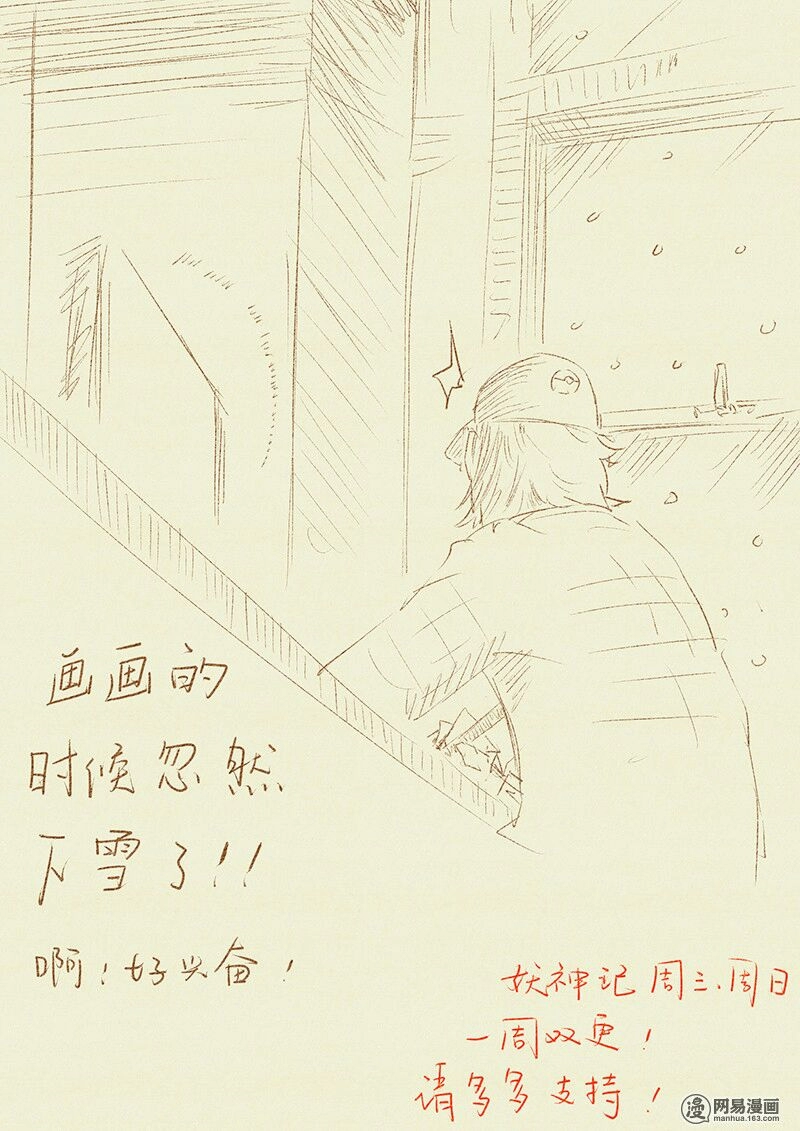 画画的
时候忽然
下雪了!!
啊!好兴奋!
妖神记 周三.周日
一周双更!
请多多支持!
漫 网易漫画
manhua.163.com